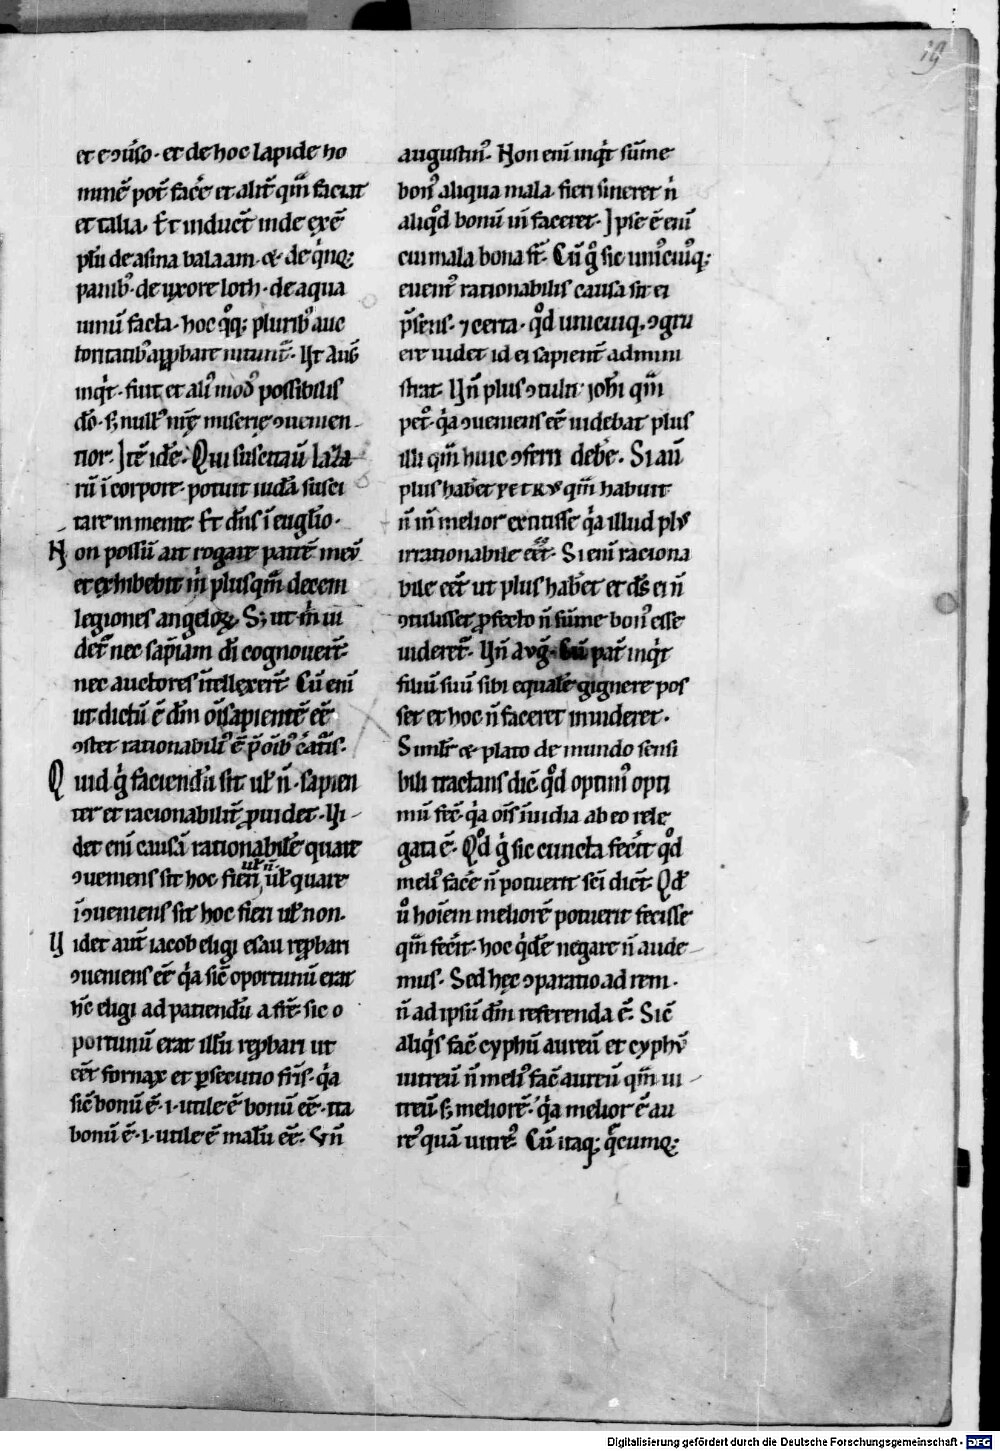 19
et e ↄͥuso · et de hoc lapide ho
minē pot̄ fac̄e et alit̄ qm̄ faciat
et talia · Et inducūt inde exē
plū de asina balaam · ⁊ de qͥnqꝫ
panibꝰ · de uxore loth · de aqua
uinū facta · hoc qͦqꝫ pluribꝰ auc
toritatibꝰ ap̄pbare nitunt᷑ · Ut Auḡ
inqͥt · fuit et aliꝰ modꝰ possibilis
dō · sꝫ nullꝰ nr̄ę miserię ↄuenien
tior · Itē idē · Qui suscitauit Laza
rū ī corpore · potuit iudā susci
tare in mente · Et dn̄s ī eugl̄io ·
Non possū ait rogare patrē meū
et exhibebit m̄ plusqm̄ decem
legiones angeloꝝ · Sꝫ ut mͥ ui
det᷑ nec sap̄iam dī cognouer̄t
nec auctores ītellexer̄t · Cū eni
ut dictū ē dm̄ oī sapientē eē
ↄstet rationabilꝰ ē p̄ oībꝰ c̄atis ·
Quid gͥ faciendū sit ul̄ n̄ · sapien
ter et racionabilit̄ ꝓuidet · Ui
det eni causā rationabilē quare
ↄueniens sit hoc fieri ul̄ n̄ ul̄ quare
īↄueniens sit hoc fieri ul̄ non .
Uidet aut̄ iacob eligi esau rep̄bari
ↄueniens eē qͥa sic̄ oportunū erat
hc̄ eligi ad patiendū a fr̄e sic o
portunū erat illū rep̄bari ut
eēt fornax et ꝑsecutio fr̄is · qͥa
sic̄ bonū ē · i · utile ē bonū eē · ita
bonū ē · i · utile ē malū eē · Vn̄
augustinꝰ · Non eni inqͥt sūme
bonꝰ aliqua mala fieri sineret nͥ
aliqͦd bonū in̄ faceret · Ipse ē eni
cui mala bona st̄ · Cū gͦ sic unicuiqꝫ
euentꝰ rationabilis causa sit ei
p̄sens · ⁊ certa · qͦd unicuiqꝫ ↄgru
ere uidet id ei sapient̄ admini
strat · Un̄ plus ↄtulit iohi qm̄
petͦ · qͥa ↄueniens eē uidebat plus
illi qm̄ huic ↄferri deb̄e · Si aū
plus hab̄et PETRVS qm̄ habuit
n̄ in̄ melior extitisse qͥa illud plꝰ
irrationabile eēt · Si eni raciona
bile eēt ut plus hab̄et et ds̄ ei n̄
ↄtulisset ꝓfecto n̄ sūme bonꝰ esse
uideret᷑ · Un̄ Avḡ · Cū pat̄ inqͥt
filiū suū sibi equalē gignere pos
set et hoc n̄ faceret inuideret ·
Similit̄ ⁊ plato de mundo sensi
bili tractans dic̄ qͦd optimꝰ opti
mū fec̄ · qͥa ois̄ īuidia ab eo rele
gata ē · Qͦd gͥ sic cuncta fec̄it qͦd
meliꝰ fac̄e n̄ potuerit sc̄i dicūt · Qd̄
uͦ hoīem meliorē potuerit fecisse
qm̄ fec̄it · hoc qͥdē negare n̄ aude
mus · Sed hęc ↄparatio ad rem ·
n̄ ad ipsū dm̄ referenda ē · Sic̄
aliqͥs fac̄ cyphū aureū et cyphū
uitreū n̄ meliꝰ fac̄ aureū qm̄ ui
treū sꝫ meliorē · qͥa melior ē au
reꝰ quā uitreꝰ · Cū itaqꝫ qͥcumqꝫ
Digitalisierung gefördert durch die Deutsche Forschungsgemeinschaft - DFG